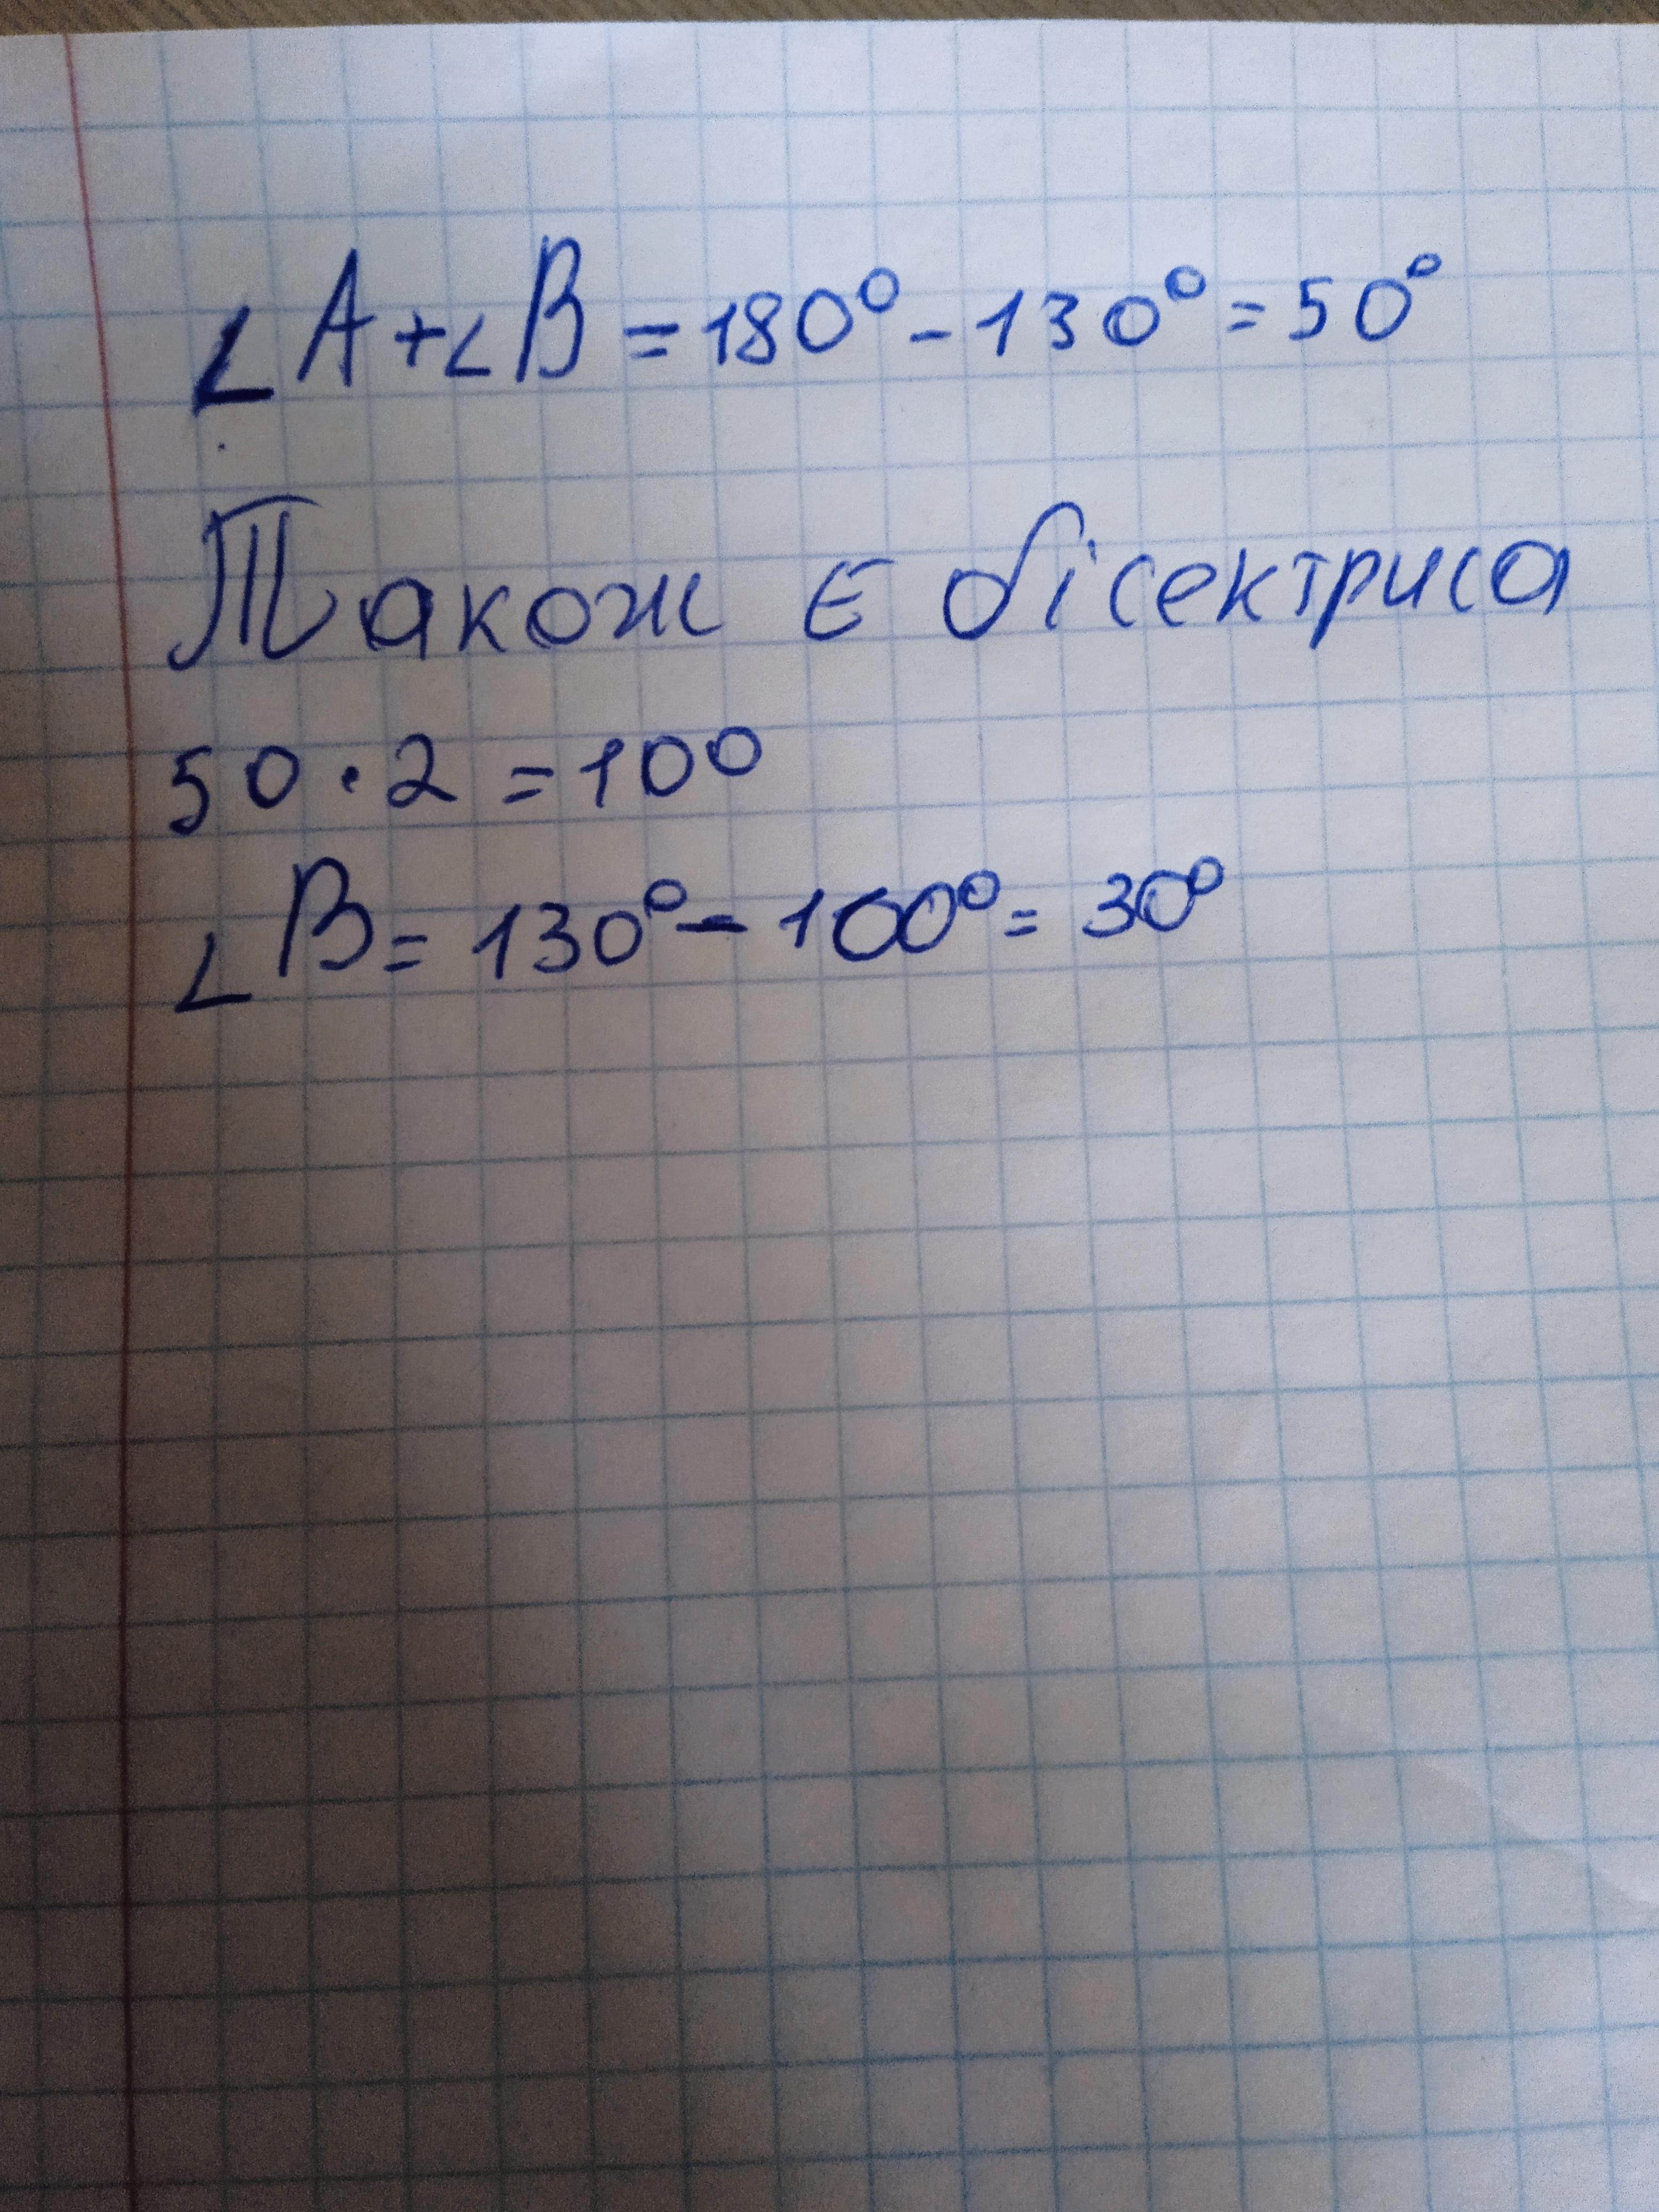 ∠A+∠B=180°-130°=50°
Також є бісектриса
50·2=100
∠B=130°-100°=30°